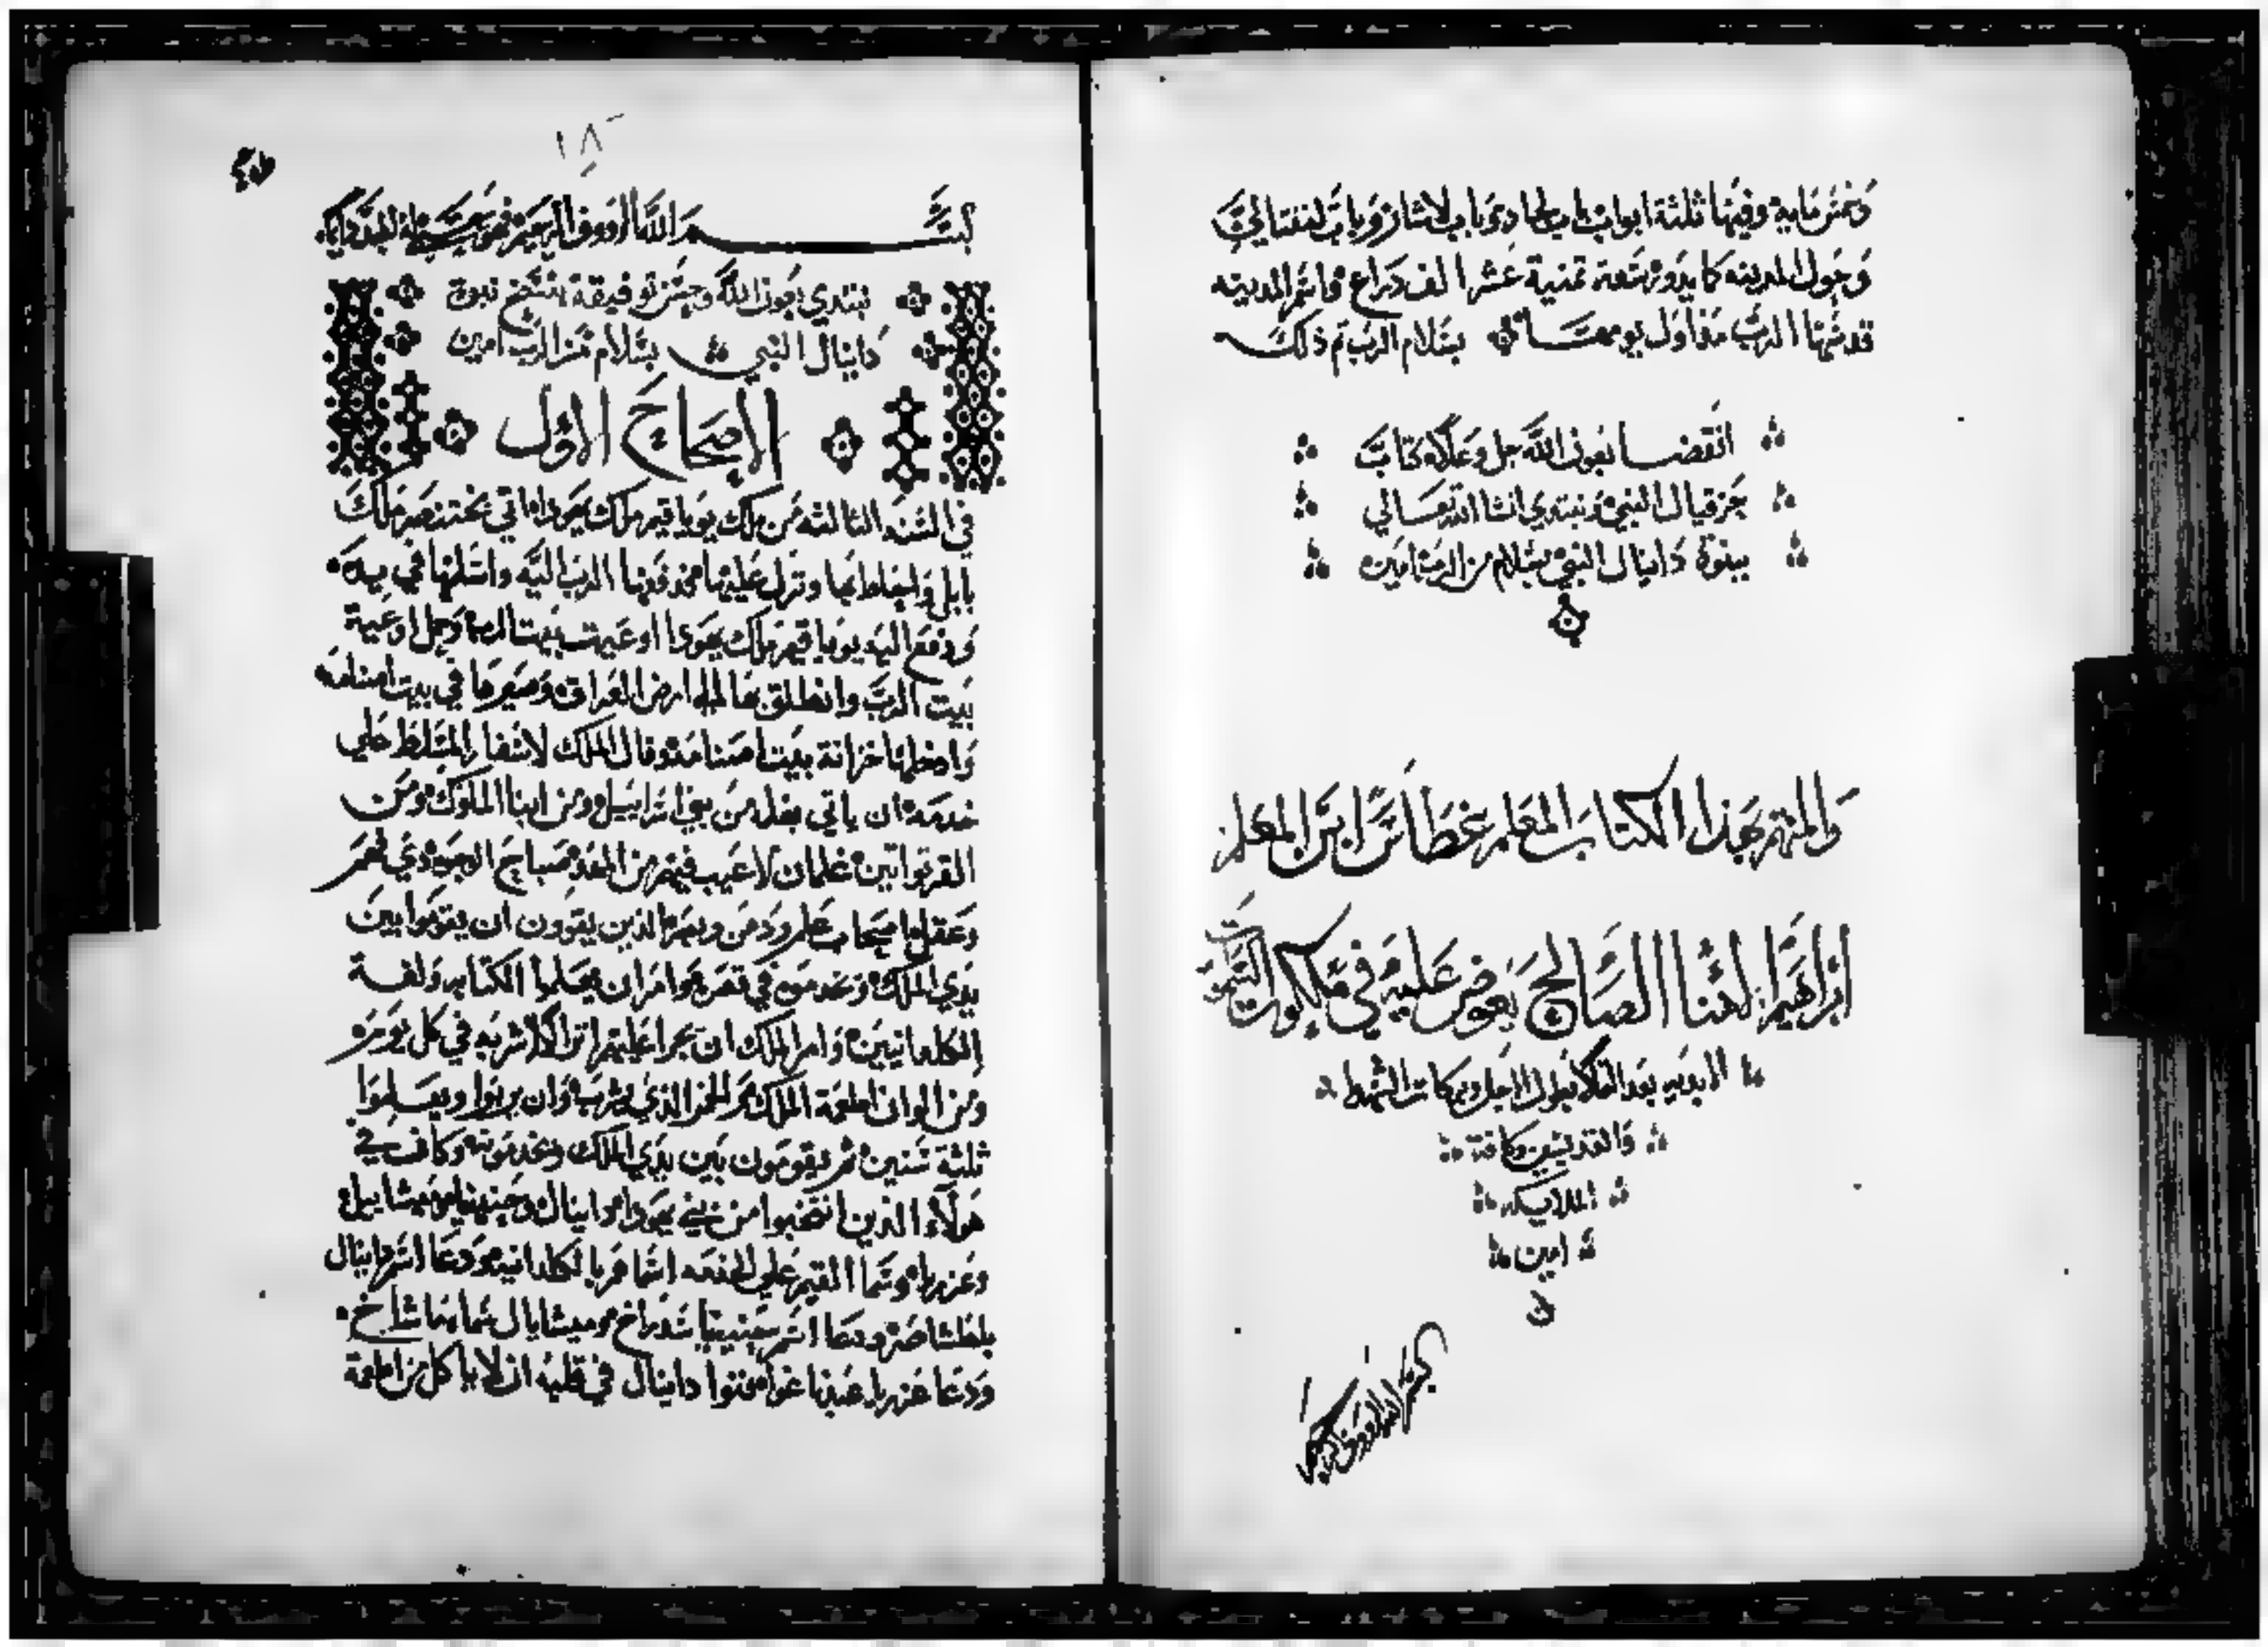 وخمس ماية وفيها ثلثة ابواب باب لجاد وباب لاشار وباب لنفتالي
وحول المدينه كما يدور تمنية عشر الف دراع واسم المدينه
قد سماها الرب من اول يوم بسلام الرب تم ذلك
انقضا بعون الله جل وعلاه كتاب
حزقيال النبي ونبتدي انشا الله تعالي
بنبوة دانيال النبي بسلام من الرب امين
والمهتم بهذا الكتاب المعلم غطاس ابن المعلم
ابراهيم الهنا الصالح يعوض عليه في ملكوت السموات
الابديه بعد بطول الاجل وبركات الشهدا
والقديسين وكافة
الملايكه
امين
بسم الله الروف الرحيم
١٨
بسم الله الرووف الرحيم
نبتدي بعون الله وحسن توفيقة بنسخ نبوة
دانيال النبي بسلام من الرب امين
الاصحاح الاول
في السنه التالته من ملك يوياقيم ملك يهودا اتي بختنصر ملك
بابل واحاط بها ونزل عليها الرب اليه واسلمها في يده
ودفع اليه يوياقيم ملك يهودا اوعيت بيت الله وحمل اوعية
بيت الرب وانطلق بها الي ارض العراق وصيرها في بيت اصنامه
وادخلها خزانة بيت اصنامه وقال الملك لاشفاز المسلط علي
خدمه ان ياتي بغلمه من بني اسراييل ومن ابنا الملوك ومن
غلمان لا عيب فيهم من العدو صباح الوجوه ذي فهم
وعقل اصحاب علم وبصر الذين يقوون ان يقوموا بين
يدي الملك وخدموه في قصره وامر ان يعلموا الكتابه ولغة
الكلدانيين وامر الملك ان يجرا عليهم في كل يوم
ومن الوان اطعمة الملك الخمر الذي يشرب وان يربوا ويعلموا
ثلثة سنين ثم يقومون بين يدي الملك ويخدمونه وكان في
هولاء الذين انتخبوا من بني يهودا دانيال وحننيا وميشاييل
وعزريا وسما القيم علي الخدمه اسما هم بالكلدانيه ودعا اسم دانيال
بلطشاصر ودعا اسم حننيا شدراخ وميشايال سماه ماشاخ
ودعا عزريا عبدناغوا دانيال في قلبه ان لا ياكل من اطعمة